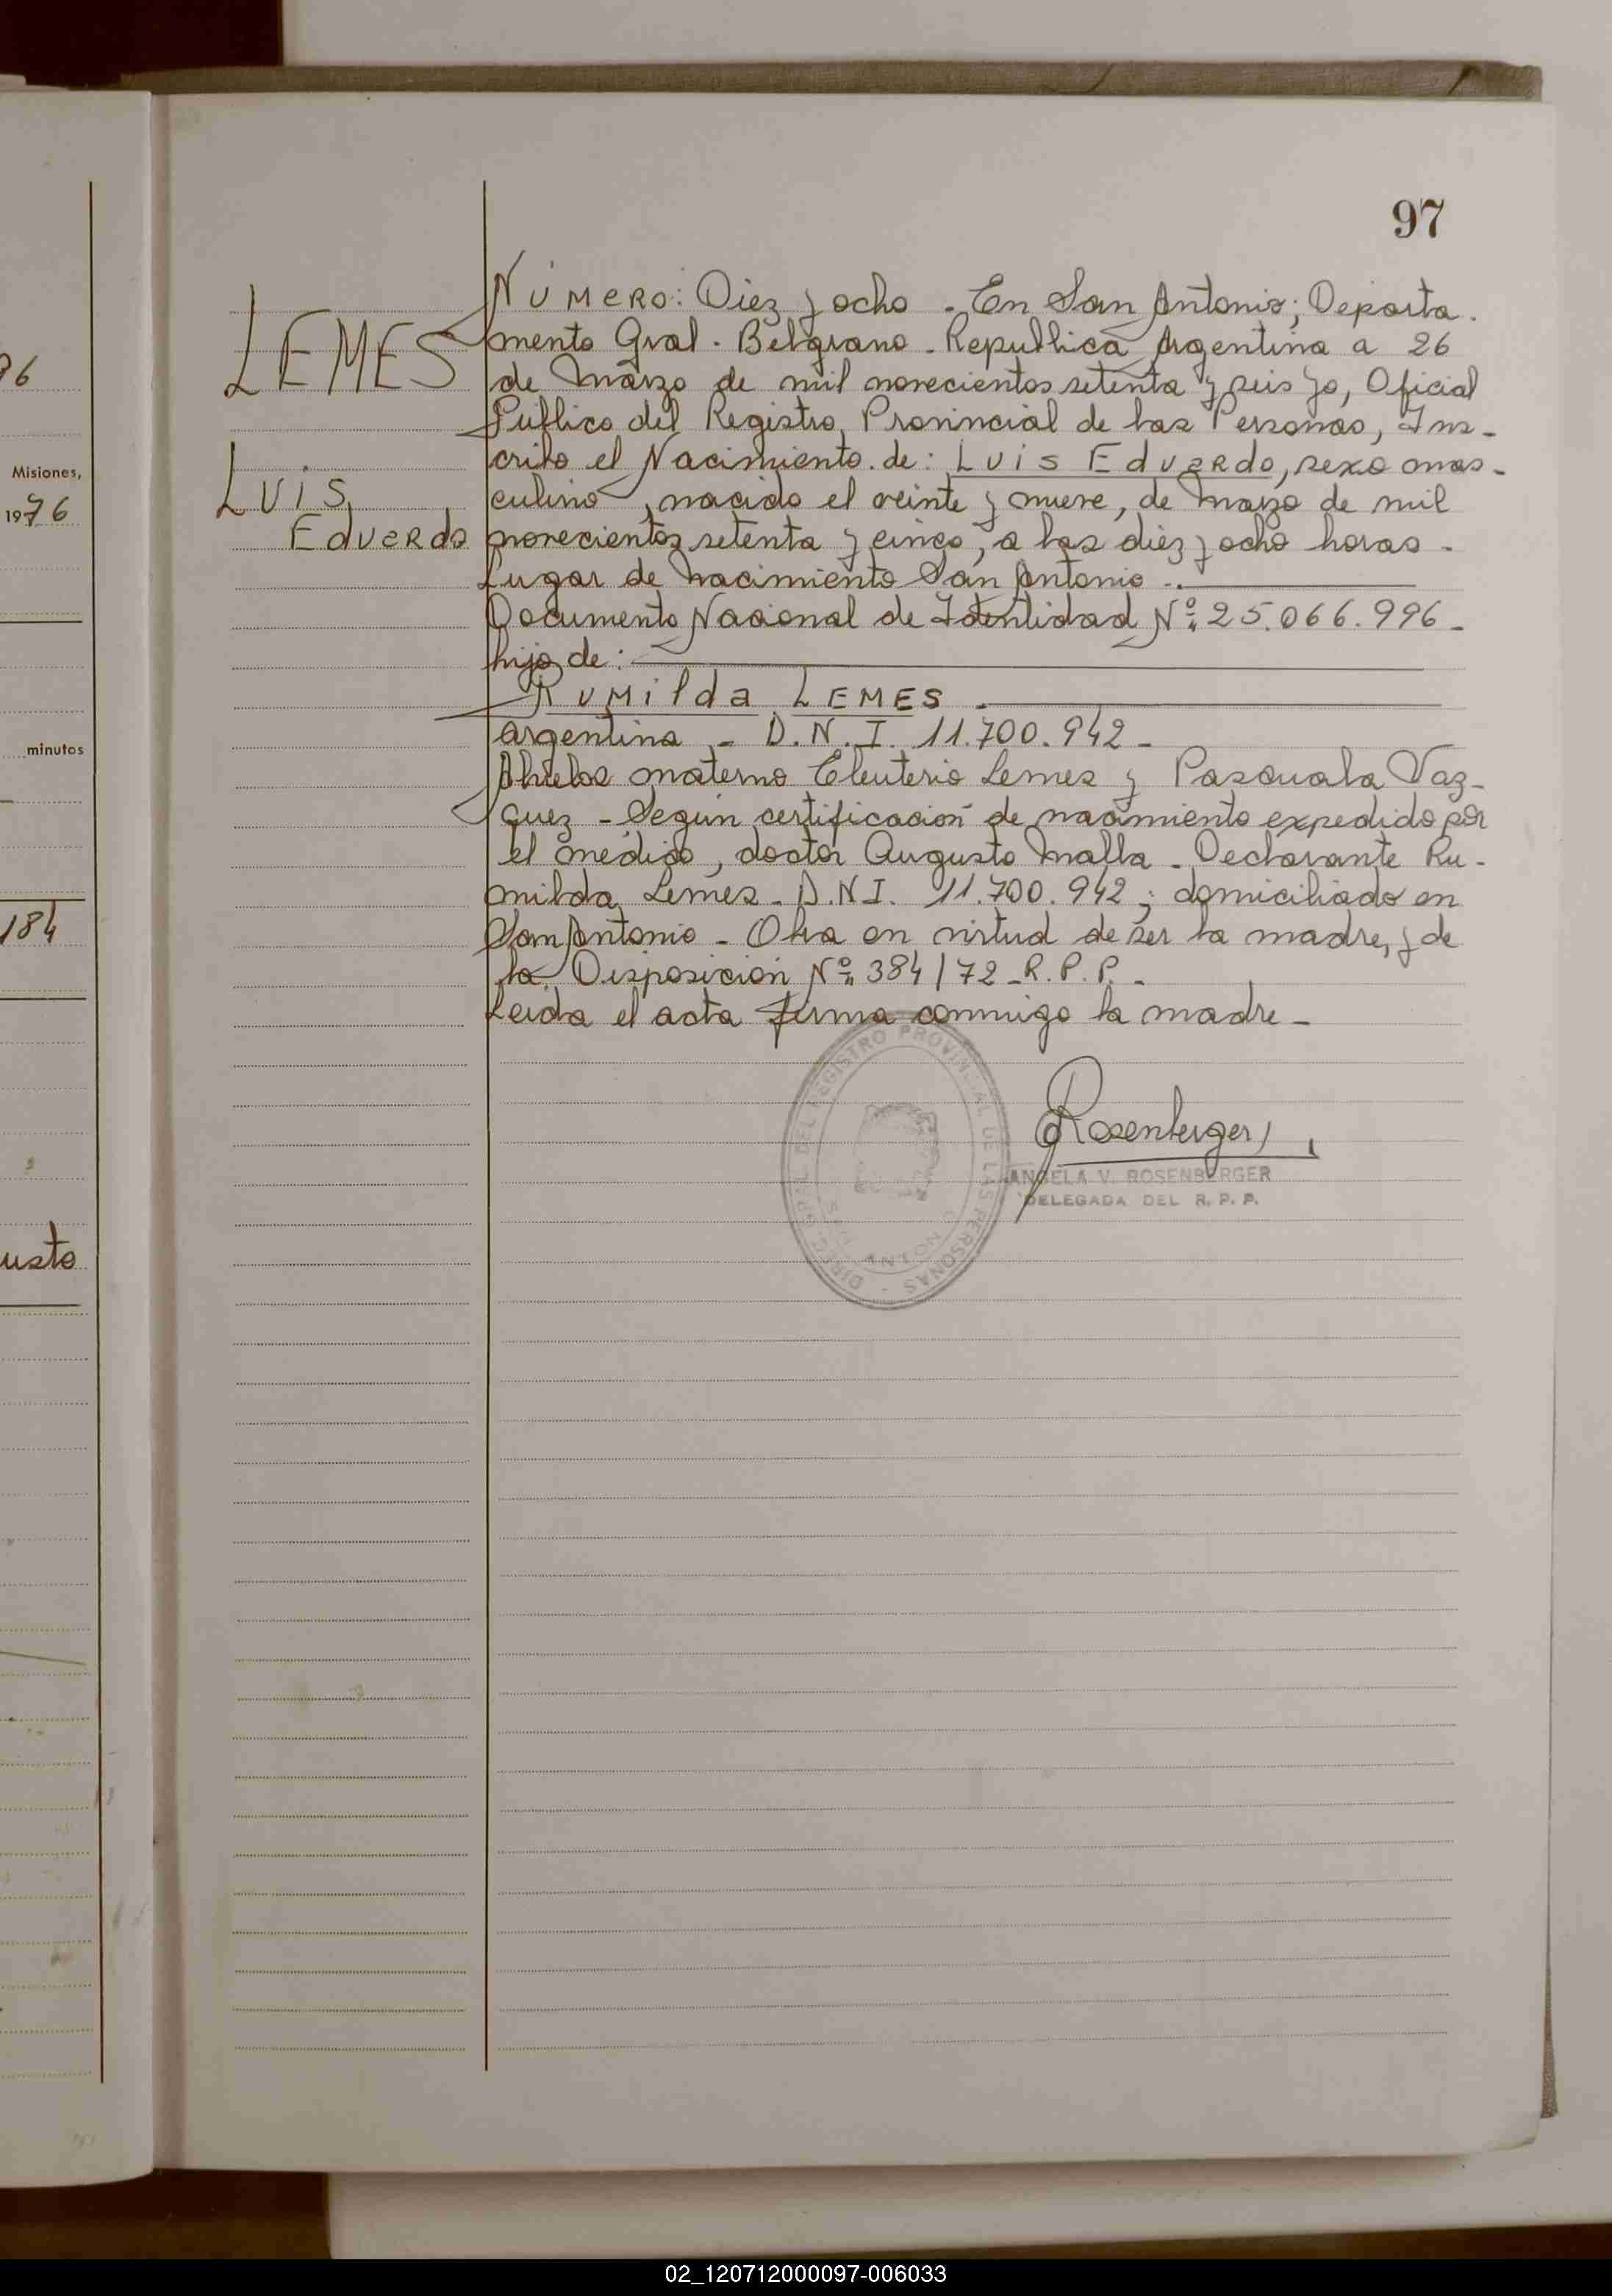 97
96
Misiones,
1976
minutos
184
usto
LEMES
Luis
Eduardo
Número: Diez y ocho - En San Antonio; Departa-
mento Gral. Belgrano - Republica Argentina a 26
de Marzo de mil novecientos setenta y seis yo, Oficial
Publico del Registro Provincial de las Personas, Ins-
cribo el Nacimiento de: Luis Eduardo, sexo mas-
culino, nacido el veinte y nueve, de Marzo de mil
novecientos setenta y cinco, a las diez y ocho horas -
Lugar de nacimiento San Antonio -.
Documento Nacional de Identidad Nº 25.066.996 -
hijo de:
Rumilda LEMES -
argentina - D.N.I. 11.700.942 -
Abuelos materno Eleuterio Lemes y Pascuala Vaz-
quez - Según certificación de nacimiento expedido por
el médico, doctor Augusto Malla - Declarante Ru-
milda Lemes - D.N.I. 11.700.942; domiciliado en
San Antonio - Obra en virtud de ser la madre, y de
la Disposición Nº 384/72 - R.P.P. -
Leida el acta firma conmigo la madre -
DIREC. GRAL. DEL REGISTRO PROVINCIAL DE LAS PERSONAS -
Rosenberger
ANGELA V. ROSENBERGER
DELEGADA DEL R. P. P.
02_120712000097-006033